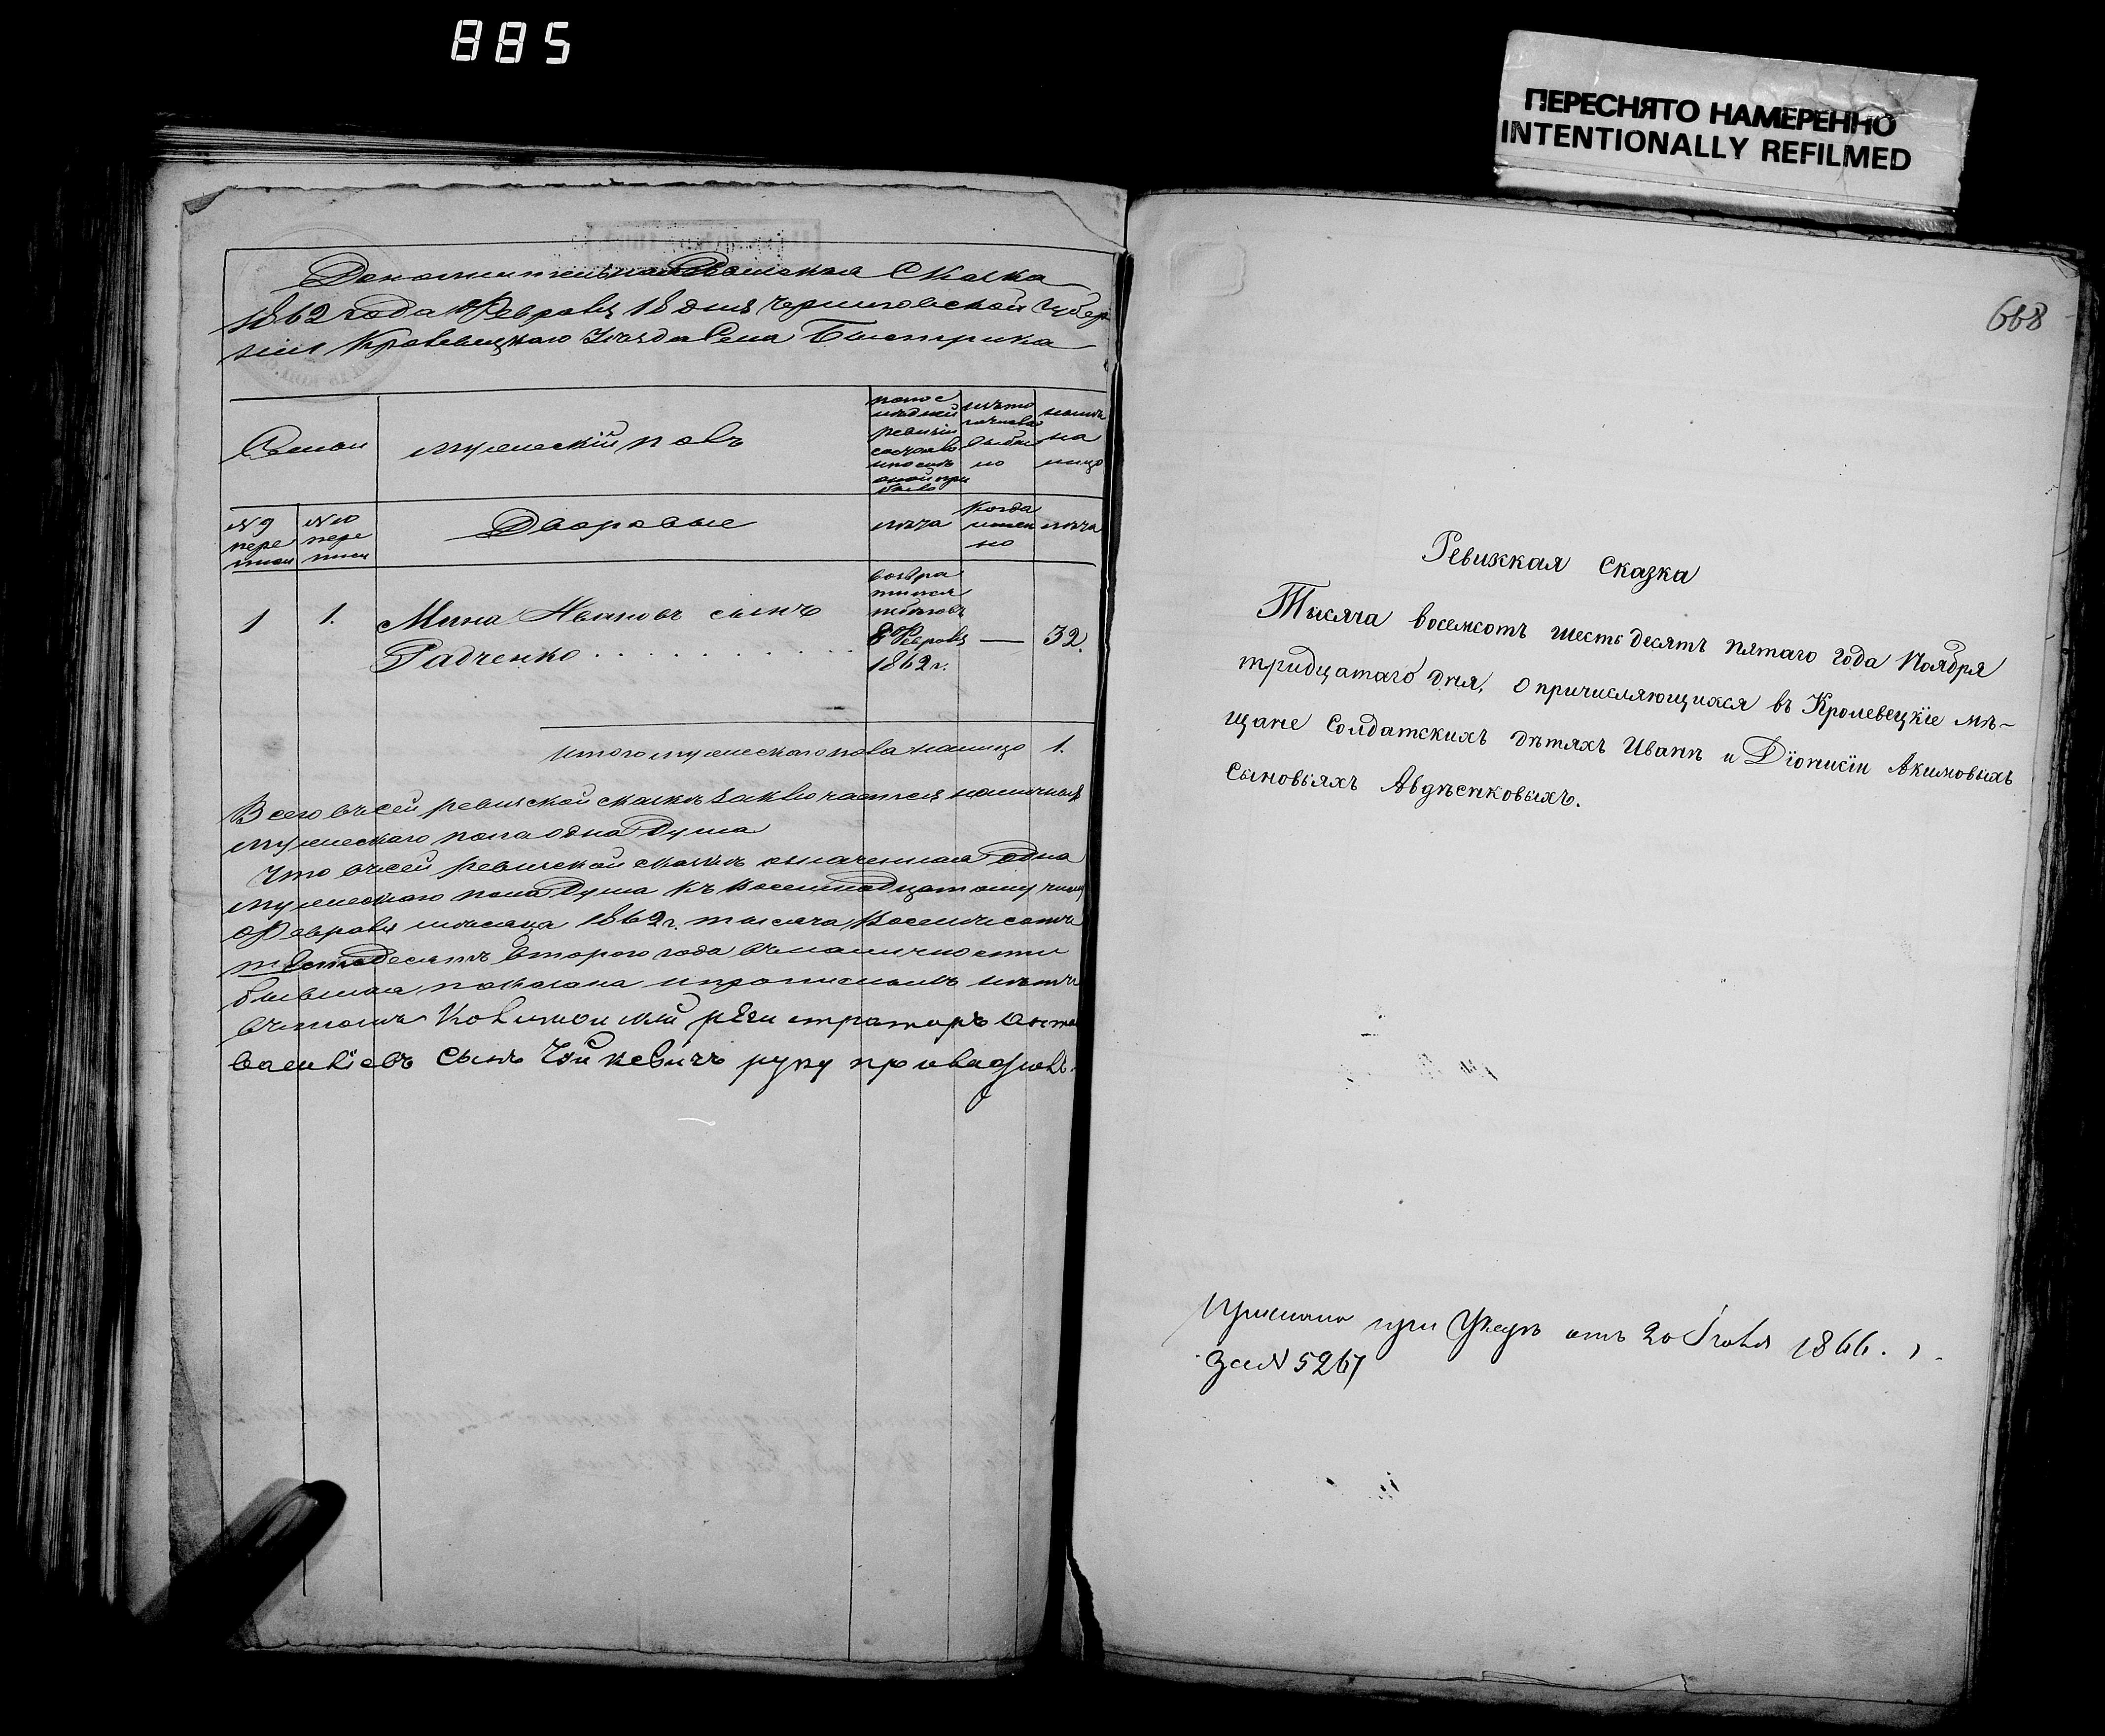 885
ПЕРЕСНЯТО НАМЕРЕННО
INTENTIONALLY REFILMED
Дополнительная Ревиская Сказка
1862 года Февраля 18 дня Черниговской Губер
ніи Кролевецкаго Уезда Села Быстрика
Семьи
мужескій полъ
по пос
ледней
ревизіи
состояло
и после
оной при
было
изъ того
числа
выбы
ло
ныне
на
лицо
№ 9
пере
писи
№ 10
пере
писи
Дворовые
лѣта
Когда
имен
но
лѣта
1
1.
Мина Ивановъ сынъ
Радченко . . . . . . . . . .
возвра
тился
из беговъ
8 Февраля
1862 г.
—
32.
итого мужескаго пола налицо 1.
Всего въ сей ревиской сказкѣ заключается наличныхъ
мужескаго пола одна Душа
Что въ сей ревиской сказкѣ означенная одна
мужескаго пола Душа къ восемнадцатому числу
Февраля месяца 1862 г. тысяча восемъ сотъ
шестьдесятъ второго года въ наличности
бывшая показана и прописныхъ нѣтъ
въ томъ Колижскій регистраторъ
Васильевъ сынъ руку приложилъ.
668
Ревижкая Сказка
Тысяча восемсотъ шестьдесятъ пятаго года Ноября
тридцатаго дня, о причисляющихся въ Кролевецкіе мѣ-
щане Солдатскихъ дѣтяхъ Иванѣ и Діонисіи Акимовыхъ
Сыновьяхъ Авдѣенковыхъ.
Прислана при Указѣ отъ 20 Іюля 1866. г.
За № 5267